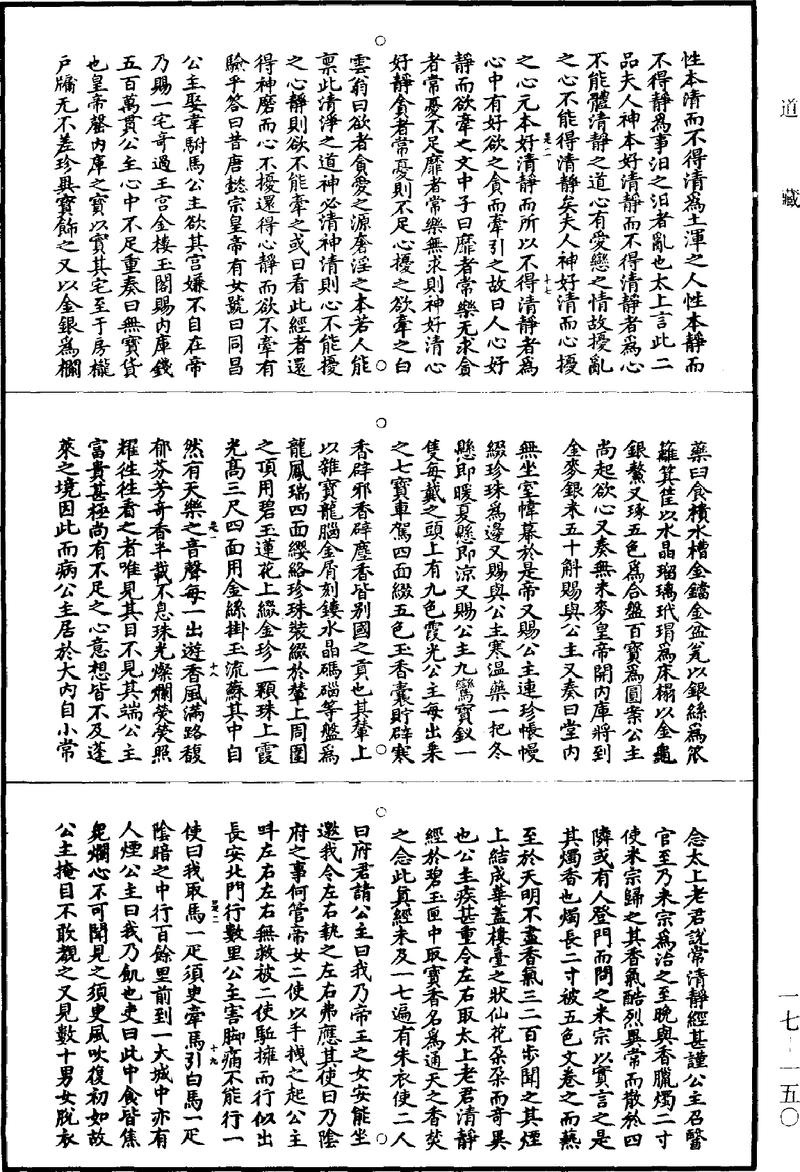 道藏
性本清而不得清爲土渾之人性本靜而
不得靜爲事汩之汩者亂也太上言此二
品夫人神本好清靜而不得清靜者爲心
不能體清靜之道心有愛戀之情故擾亂
之心不能得清靜矣夫人神好清而心擾
卷一
十七
之心元本好清靜而所以不得清靜者爲
心中有好欲之貪而牽引之故曰人心好
靜而欲牽之文中子曰靡者常樂无求貪
者常憂不足靡者常樂無求則神好清心
好靜貪者常憂則不足心擾之欲牽之白
雲翁曰欲者貪愛之源奢淫之本若人能
稟此清淨之道神必清神清則心不能擾
之心靜則欲不能牽之或曰看此經者還
得神磨而心不擾還得心靜而欲不牽有
驗乎答曰昔唐懿宗皇帝有女號曰同昌
公主娶韋駙馬公主欲其宮嫌不自在帝
乃賜一宅奇過王宮金樓玉閣賜內庫錢
五百萬貫公主心中不足重奏曰無寶貨
也皇帝罄內庫之寶以實其宅至于房櫳
戶牖无不差珍異寶飾之又以金銀爲欄
藥臼食櫃水槽金鐺金盆瓮以銀絲爲笊
籬箕筐以水晶瑠璃玳瑁爲床榻以金龜
銀鰲又琢五色爲合盤百寶爲圓案公主
尚起欲心又奏無米麥皇帝開內庫將到
金麥銀米五十斛賜與公主又奏曰堂內
無坐室幃幕於是帝又賜公主連珍帳幔
綴珍珠爲邊又賜與公主寒温藥一把冬
懸即暖夏懸即涼又賜公主九鸞寶釵一
隻每戴之頭上有九色霞光公主每出乘
之七寶車駕四面綴五色玉香囊貯辟寒
香辟邪香辟塵香皆别國之貢也其輦上
以雜寶龍腦金屑刻鏤水晶碼碯等盤爲
龍鳳瑞四面纓絡珍珠裝綴於輦上周圍
之頂用碧玉蓮花上綴金珍一顆珠上霞
光高三尺四面用金絲掛玉流蘇其中自
卷一
十八
然有天樂之音聲每一出遊香風滿路馥
郁芬芳奇香半載不息珠光燦爛熒熒照
耀往往看之者唯見其目不見其端公主
富貴甚極尚有不足之心意想皆不及蓬
萊之境因此而病公主居於大内自小常
念太上老君說常清靜經甚謹公主召醫
官至乃米宗爲治之至晚與香臘燭二寸
使米宗歸之其香氣酷烈異常而散於四
隣或有人登門而問之米宗以實言之是
其燭香也燭長二寸被五色文卷之而爇
至於天明不盡香氣三二百步聞之其煙
上結成華蓋樓臺之狀仙花朶朶而奇異
也公主疾甚重令左右取太上老君清靜
經於碧玉匣中取寶香名爲通天之香焚
之念此真經未及一七遍有朱衣使二人
曰府君請公主曰我乃帝王之女安能坐
邀我令左右執之左右弗應其使曰乃陰
府之事何管帝女二使以手拽之起公主
呌左右左右無救被二使駈擁而行似出
長安北門行數里公主害脚痛不能行一
卷二
十九
使曰我取馬一疋須臾牽馬引白馬一疋
陰暗之中行百餘里前到一大城中亦有
人煙公主曰我乃飢也吏曰此中食皆焦
臰爛心不可聞見之須臾風吹復初如故
公主掩目不敢覩之又見數十男女脫衣
一七－一五〇